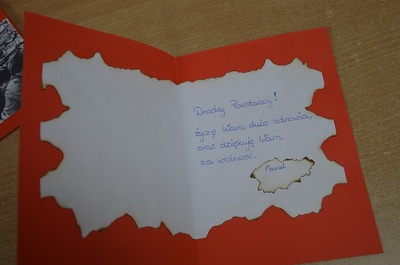 Drodzy Powstańcy!
życzę Wam dużo zdrowia,
oraz dziękuję Wam
za wolność.